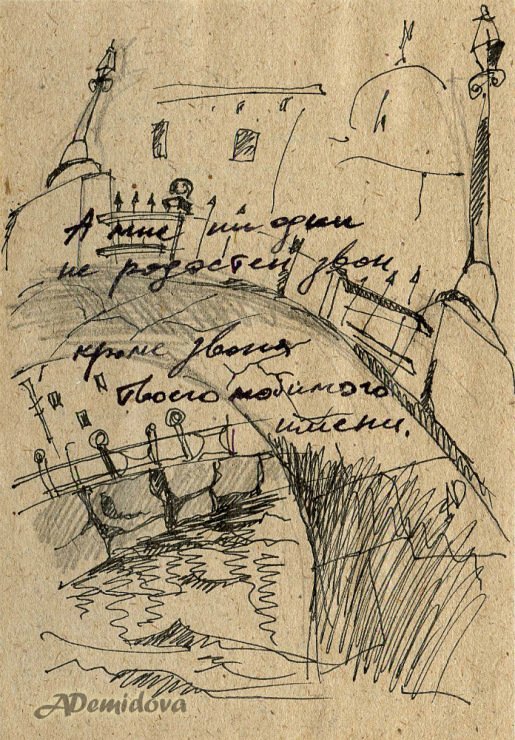 А мне ни один
не радостен звон
кроме звона
твоего любимого
имени.
AD
ADemidova